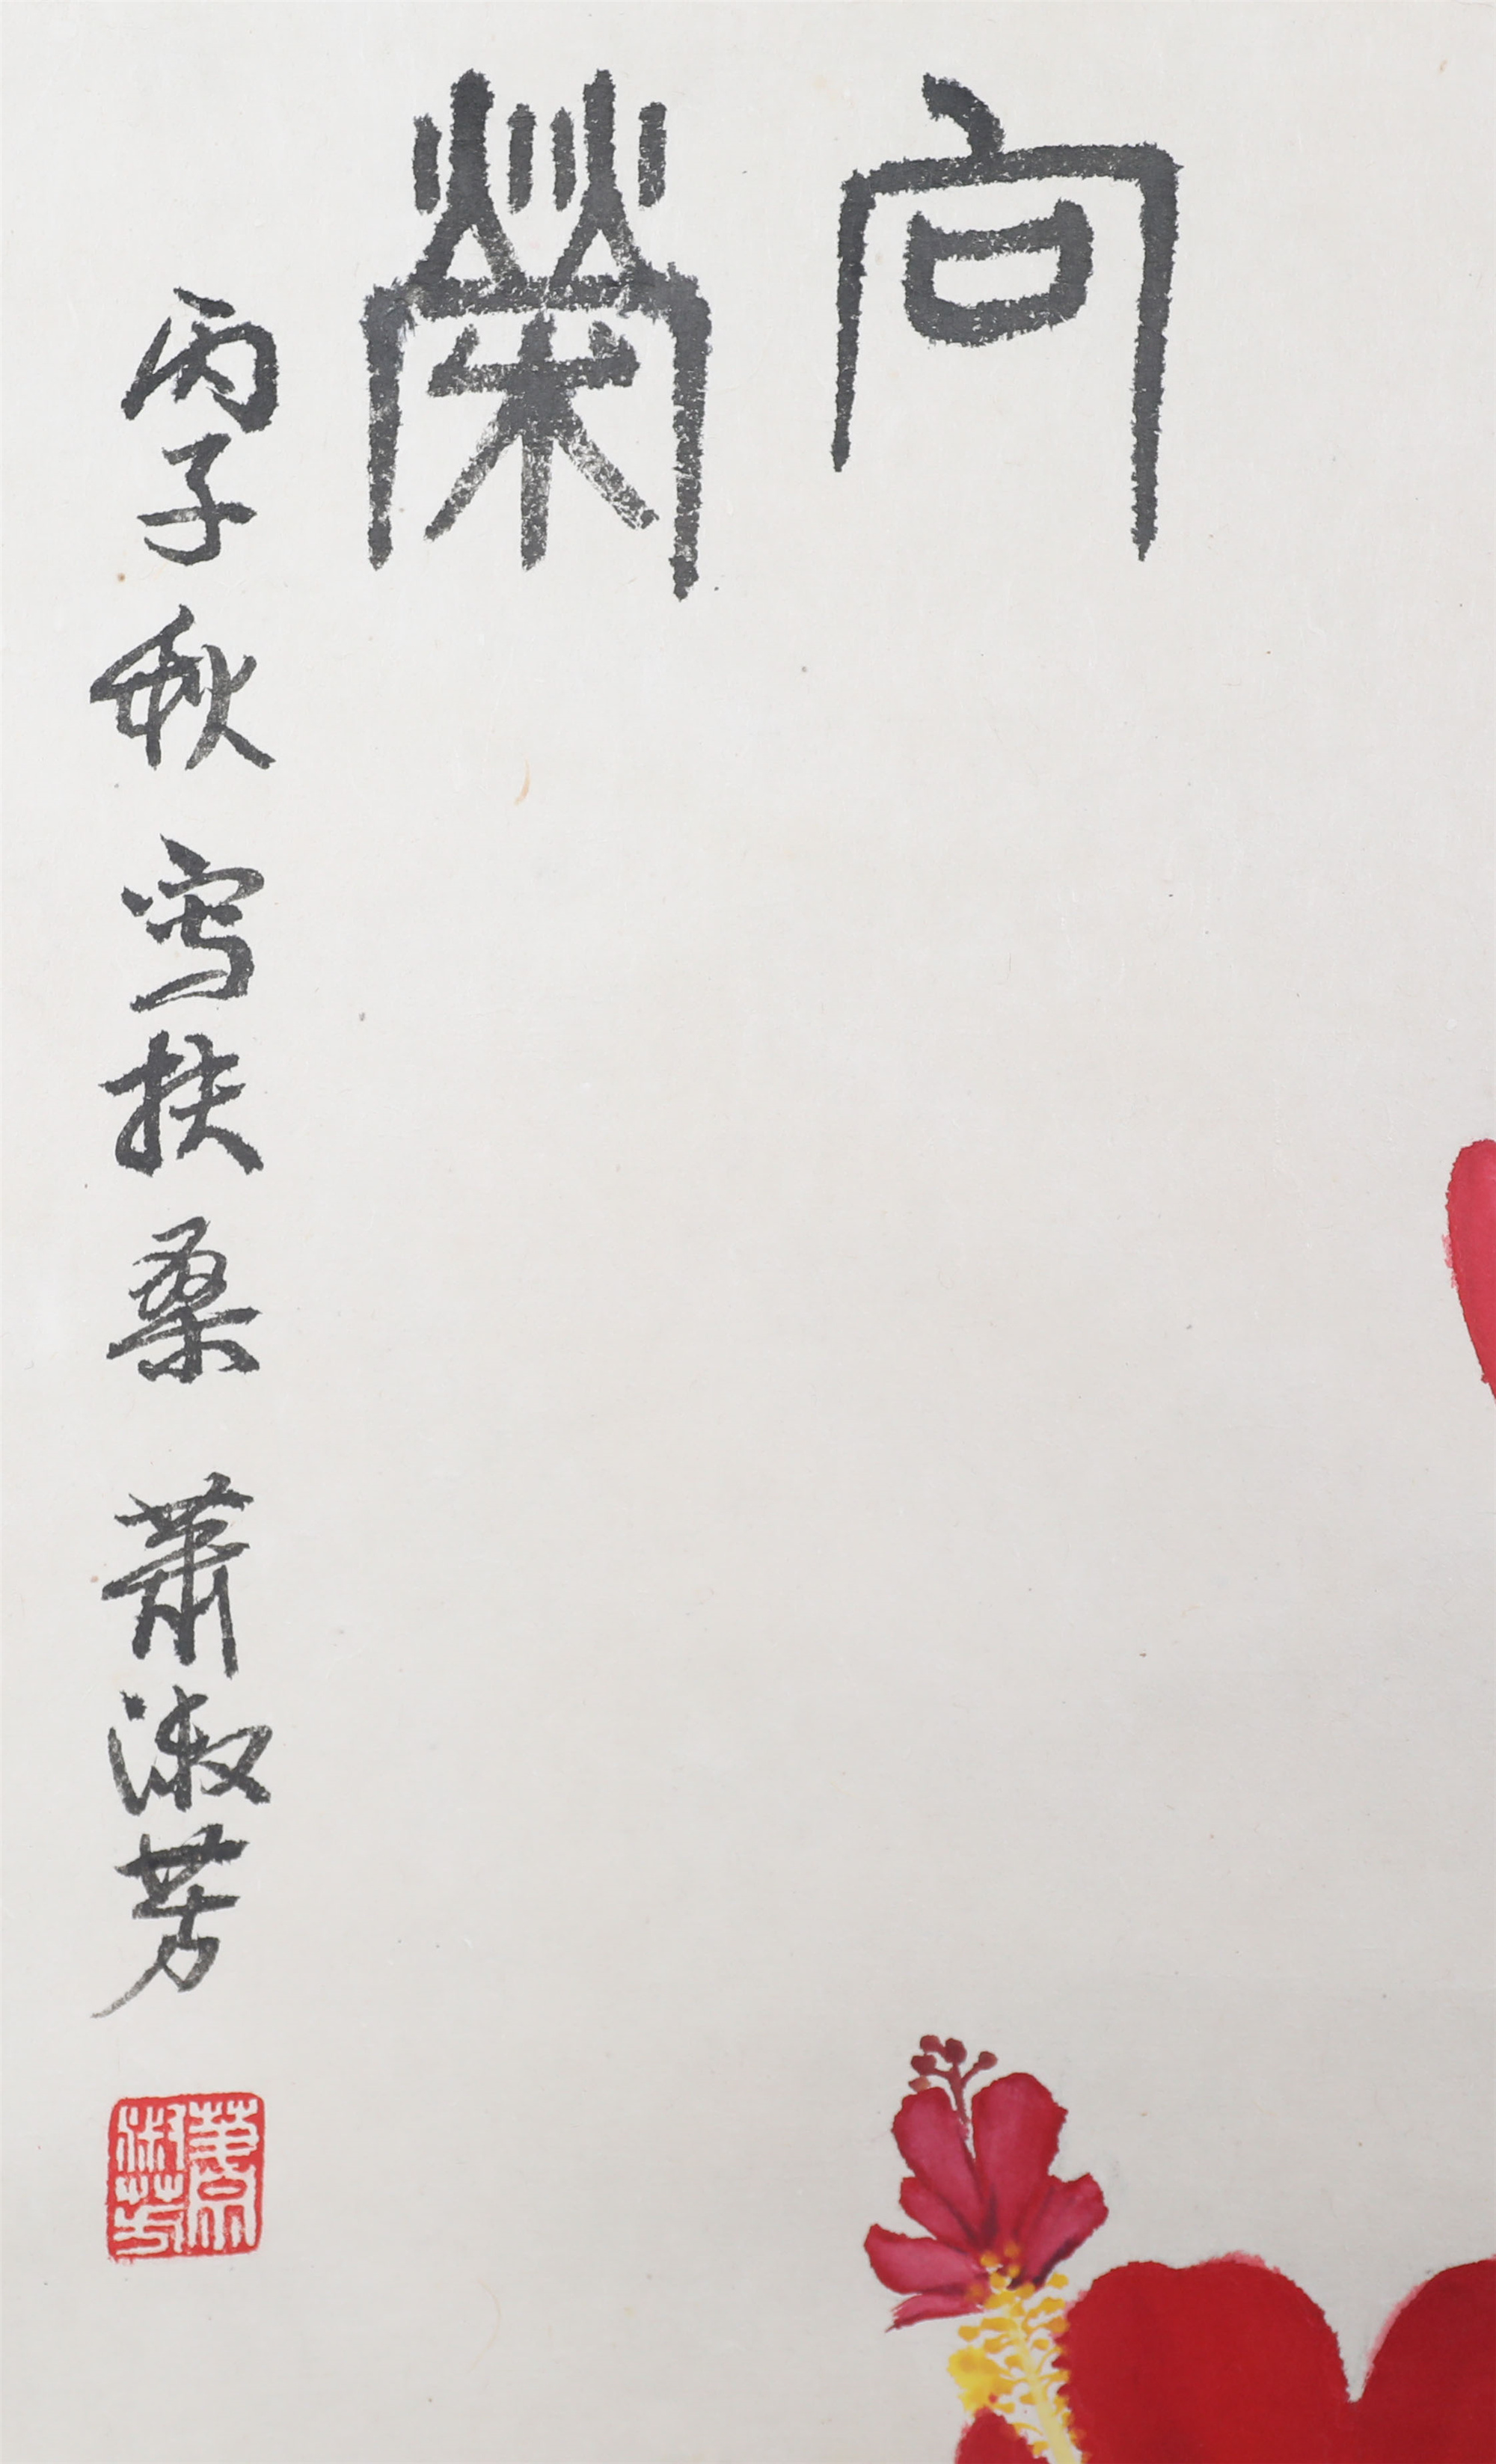 向榮
丙子秋寫扶桑蕭淑芳
蕭淑芳